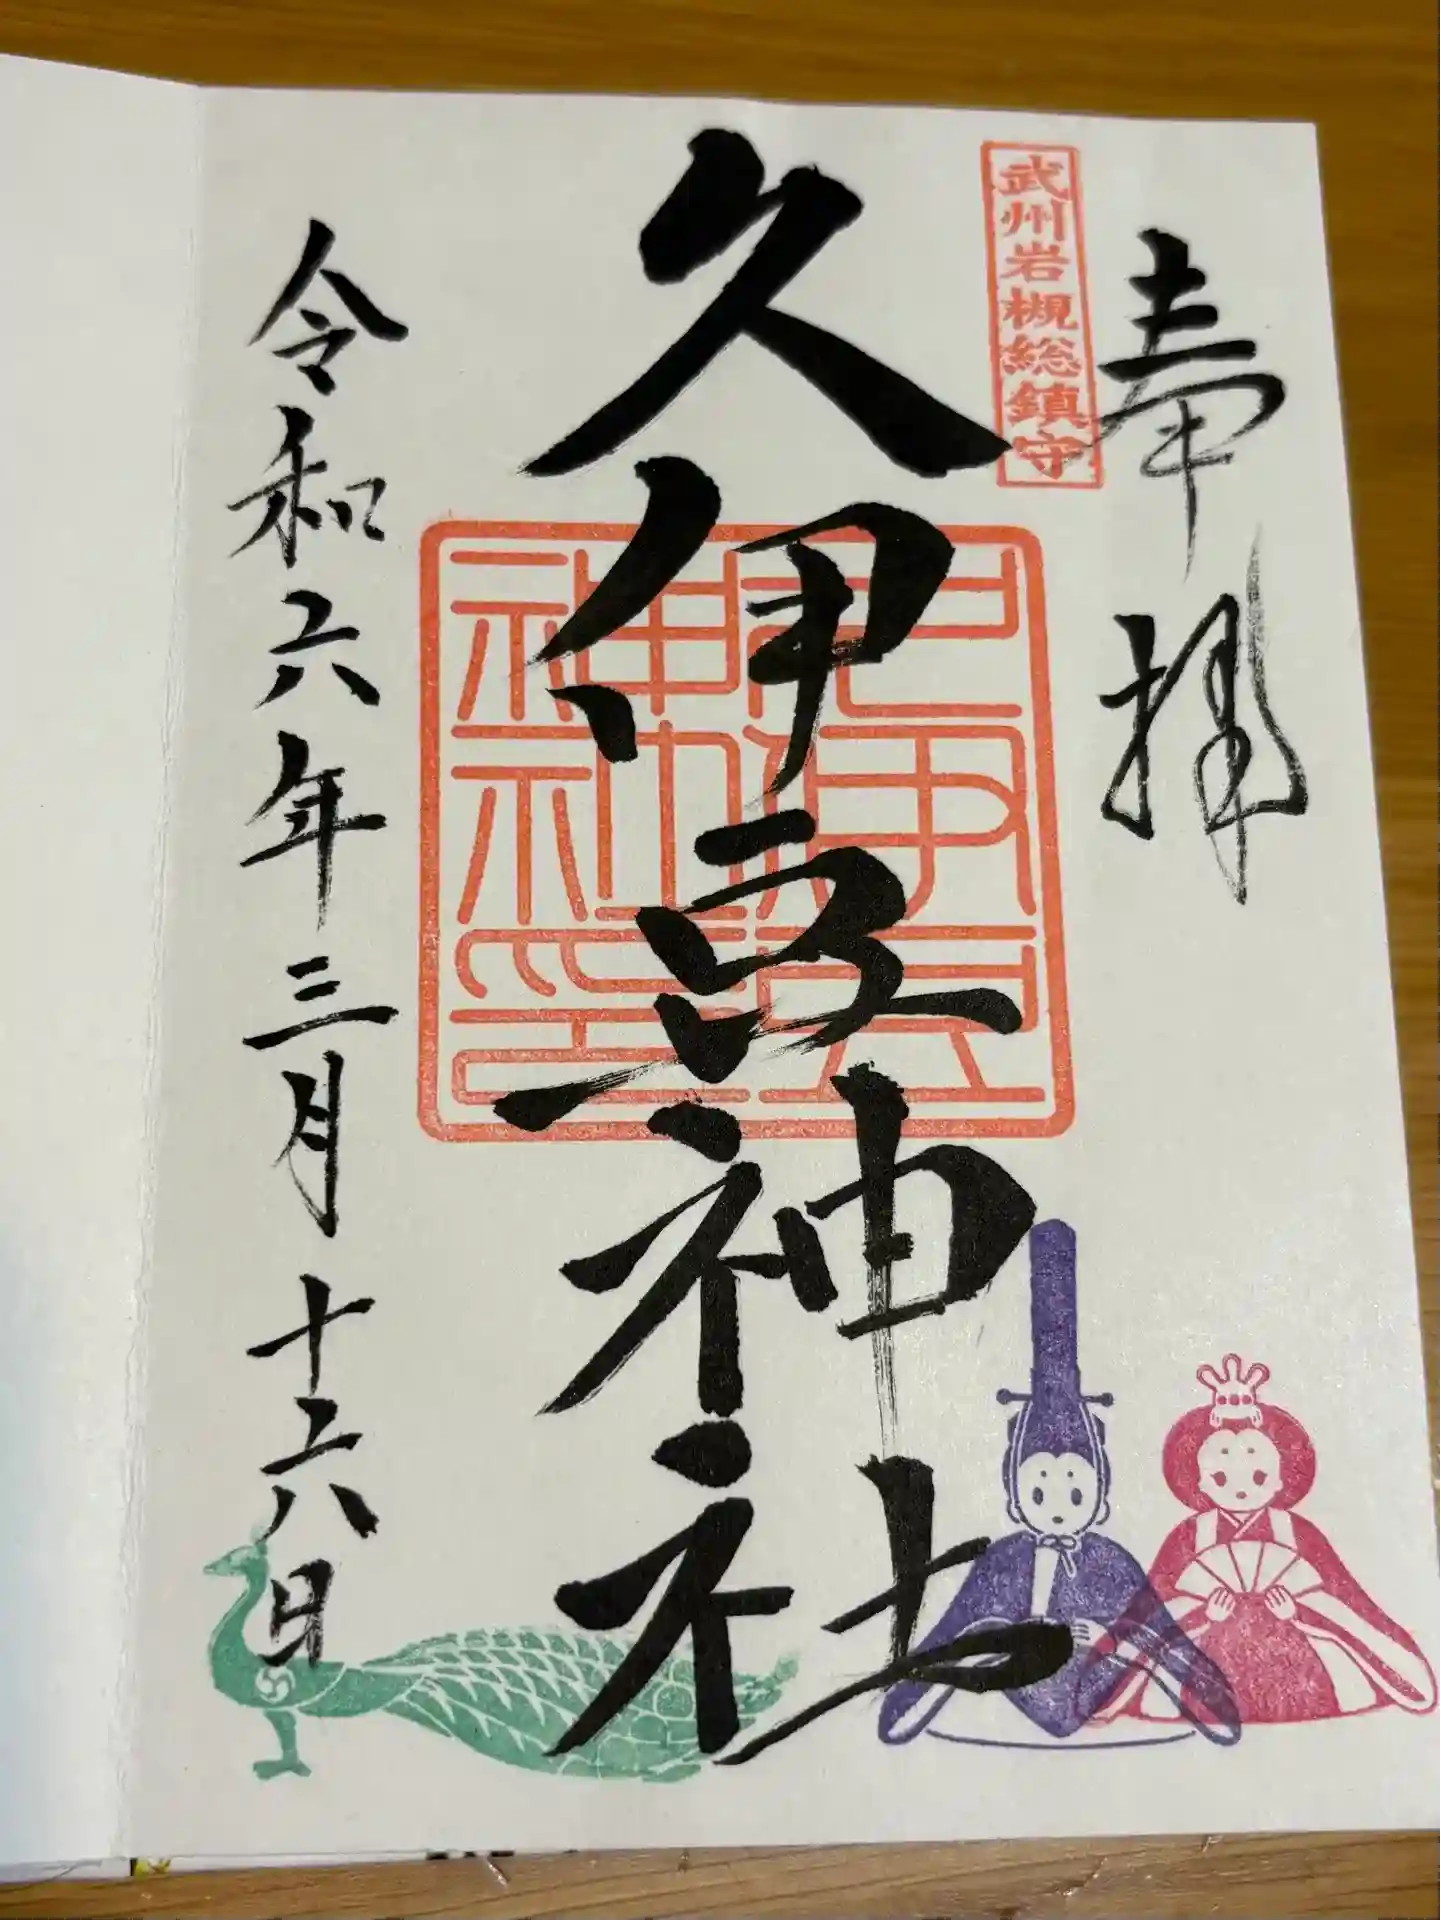 奉拝
武州岩槻総鎮守
久伊豆神社
久伊豆
神社印
令和六年三月十六日